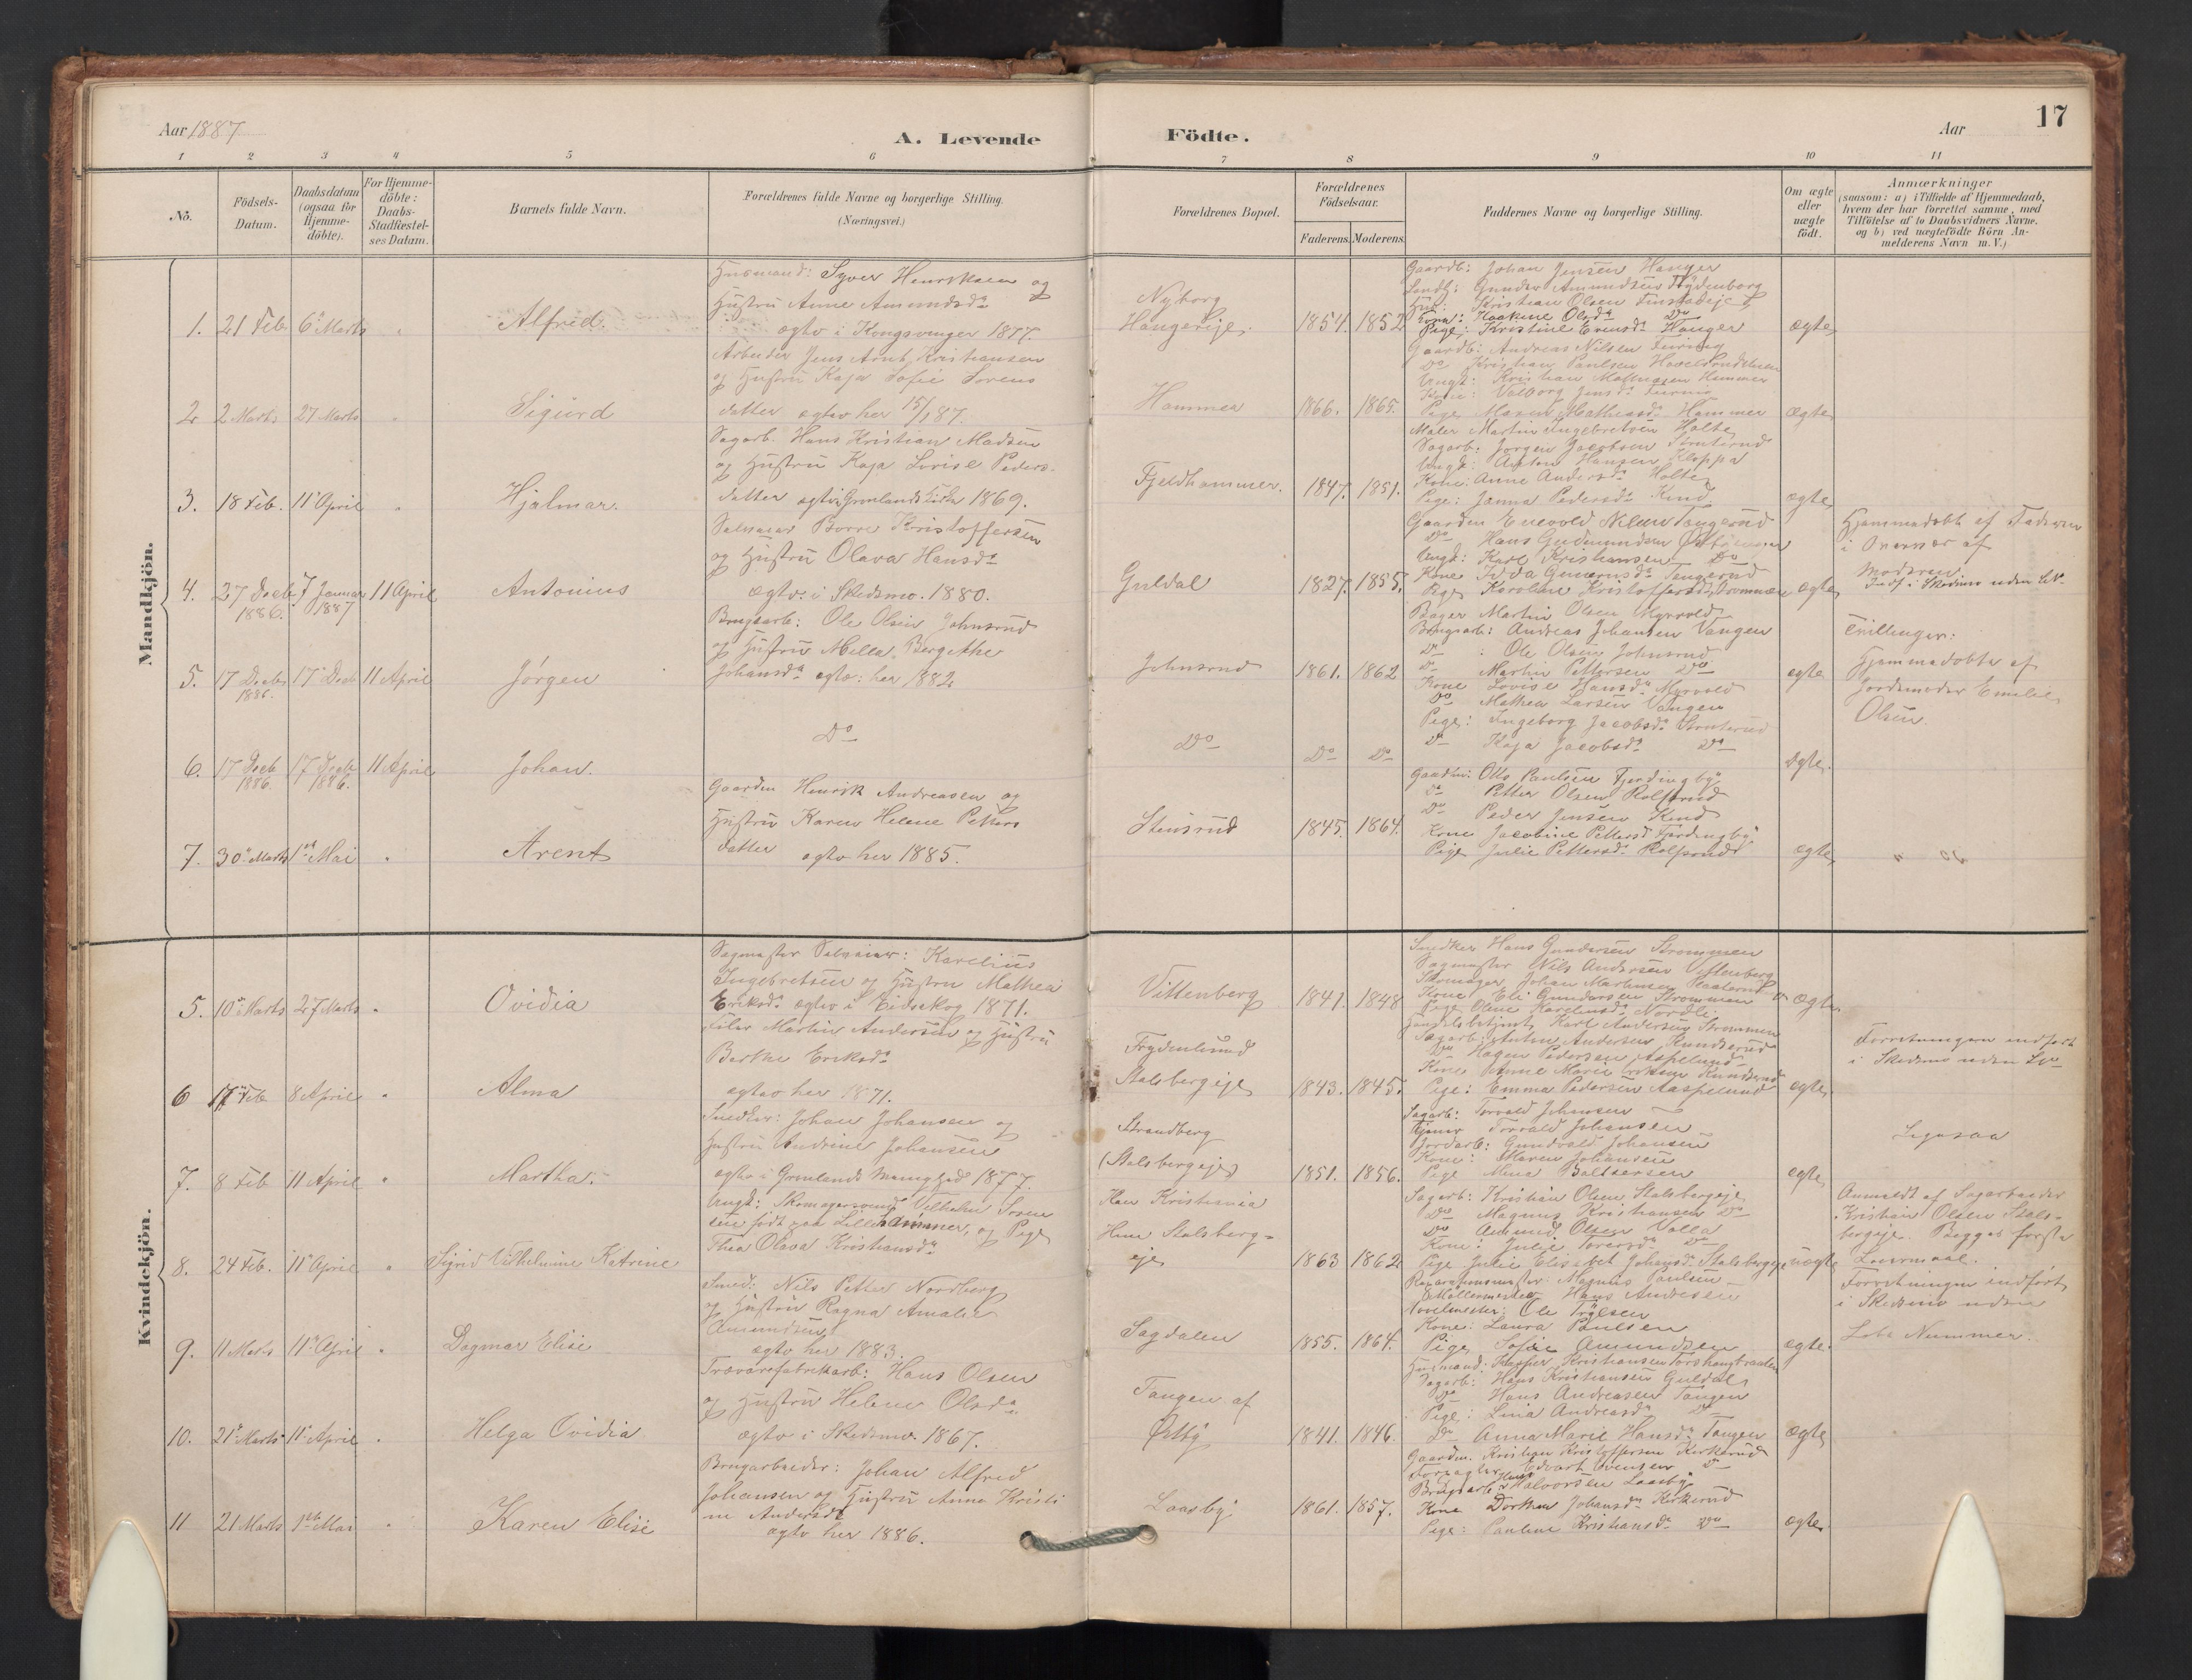 Aar 1887
A. Levende
Födte.
Aar
17
1
2
3
4
5
6
7
8
9
10
11
No.
Födsels-
Datum.
Daabsdatum
(ogsaa för
Hjemme-
döbte).
For Hjemme-
döbte:
Daabs-
Stadfæstel-
ses Datum.
Barnets fulde Navn.
Forældrenes fulde Navne og borgerlige Stilling.
(Næringsvei.)
Forældrenes Bopæl.
Forældrenes
Födselsaar.
Faderens.
Moderens.
Faddernes Navne og borgerlige Stilling.
Om ægte
eller
uægte
födt.
Anmærkninger
(saasom: a) i Tilfælde af Hjemmedaab,
hvem der har forrettet samme, med
Tilföielse af to Daabsvidners Navne.
og b) ved uægtefödte Börn An-
melderens Navn m. V.)
Mandkjön.
1. 21 Feb 6te Marts " Alfred.
Husmand: Syver Henriksen og
Hustru Anne Amundsdr
ægtv i Kongsvinger 1877.
Nyborg
Haugereje.
1854. 1852
Gaardb: Johan Jensen Hauger
Gunder Amundsen Frydenborg
Kristian Olsen
Kone: Haakine Olsdr Do
Pige: Kristine Evensdr Hauger
ægte
2 2 Marts 27 Marts " Sigurd
Arbeider Jens Arnt Kristiansen
og Hustru Kaja Sofie Sorens
datter ægtv her 15/1 87.
Hammer
1866. 1865.
Gaardb: Andreas Nilsen
Do Kristian Paulsen
Ungk: Kristian Mathiasen Hammer
Kone: Valborg Jensdr
Pige Maren Mathiasdr Hammer
ægte
3. 18 Feb. 11te April " Hjalmar.
Sagarb. Hans Kristian Madsen
og Hustru Kaja Lovise Peders-
datter ægtv i Grønlands Kirke 1869.
Fjeldhammer.
1847. 1851.
Maler Martin Ingebretsen Holte
Sagarb: Jørgen Jacobsen
Ungk: Anton Hansen Kloppa
Kone: Anne Andersdr Holte
Pige: Janna Pedersdr Kind
ægte
4. 27 Decb 1886. 7 Januar 1887 11 April Antonius
Børre Kristoffersen
og Hustru Olava Hansdr
ægtv. i Skedsmo. 1880.
Guldal
1827. 1855.
Gaardm Enevold Nilsen Tangerud
Do Hans Gudmundsen
Ungk: Karl Kristiansen Do
Kone Tangerud
Pige Karoline Kristoffersdr
ægte
Hjemmedøbt af Faderen
i Overvær af
Moderen.
Indf. i Skedsmo uden
5. 17 Decb 1886. 17 Decb 11 April Jørgen
Brugsarb: Ole Olsen Johnsrud
og Hustru Mella Bergithe
Johansdr ægtv: her 1882.
Johnsrud
1861. 1862
Bager Martin Olsen Myrvold
Brugsarb: Andreas Johansen Vangen
Do : Ole Olsen Johnsrud
Do Martin Pettersen Do
Kone Lovise Hansdr Myrvold
Do Mathea Larsen Vangen
Pige: Ingeborg Jacobsdr
Do Kaja Jacobsdr Do
ægte
Tvillinger:
Hjemmedøbte af
Jordemoder Emelie
Olsen.
6. 17 Decb 1886. 17 Decb 1886. 11 April Johan.
Do
Do
Do Do
ægte.
7. 30te Marts 1ste Mai " Arent
Gaardm Henrik Andreasen og
Hustru Karen Helene Petters
datter ægtv her 1885.
Stensrud
1845. 1864.
Gaardm: Otto Paulsen Fjerdingby
Do Petter Olsen Rolfsrud
Do Peder Jensen Kind
Kone Jacobine Pettersdr Fjerdingby
Pige Julie Pettersdr Rolfsrud
ægte
Kvindekjön.
5. 10te Marts 27 Marts " Ovidia
Sagmester Karelius
Ingebretsen og Hustru Mathea
Eriksdr ægtv i Eidsskog 1871.
Vittenberg
1841. 1848
Snedker Hans Gundersen Strømmen
Sagmester Nils Andersen Vittenberg
Skomager Johan Martinsen
Kone Eli Gundersen Strømmen
Pige Oline Kareliusdr Nordli
ægte
6 17te Feb 8 April " Alma
Filer Martin Andersen og Hustru
Berthe Eriksdr
ægtv her 1871.
Frydenlund
Stalsbergeje
1843. 1845.
Handelsbetjent Karl Andersen Strømmen
Sagarb: Anton Andersen
Do Hagen Pedersen Aaspelund
Kone Anne Marie
Pige: Emma Pedersen Aaspelund
ægte.
Forretningen indført
i Skedsmo uden
7. 8 Feb 11 April " Martha.
Snedker: Johan Johansen og
Hustru Andrine Johansen
ægtv i Grønlands Menighed 1877.
Strandberg
(Stalsbergeje)
1851. 1856.
Sagarb: Torvald Johnsen
Torvald Johansen
Jordarb: Gundvald Johansen
Kone: Maren Johansen
Pige Mina Baltsersen
ægte
Ligesaa
8. 24 Feb. 11te April " Sigrid Vilhelmine Katrine
Ungk: Skomagersvend Vilhelm
født paa Lillehammer, og Pige
Thea Olava Kristiansdr
Han Kristiania
Hun Stalsberg-
eje
1863 1862
Sagarb: Kristian Olsen Stalsbergeje
Do Magnus Kristiansen Do
Do Amund Olsen Valla
Kone: Julie Do
Pige Julie Elisabet Johansdr Stalsbergeje
uægte
Anmeldt af Sagarbeider
Kristian Olsen Stals-
bergeje. Begges første
Leiermaal.
9. 11 Marts 11te April " Dagmar Elise
Smed: Nils Petter Nordberg
og Hustru Ragna Amalie
Amundsen
ægtv her 1883.
Sagdalen
1855. 1864.
Magnus Paulsen
Møllermester Hans Andresen
Ole
Kone: Laura Paulsen
Pige Sofie Amundsen
ægte.
Forretningen indført
i Skedsmo uden
Løbe Nummer.
10. 21te Marts 11te April " Helga Ovidia
Trævarefabrikarb: Hans Olsen
og Hustru Helene Olsdr
ægtv i Skedsmo 1867.
Tangen af
Østby
1841. 1846.
Husmand: Kasper Kristiansen
Sagarb: Hans Kristiansen Guldal
Do Hans Andreasen Tangen
Pige: Lina Andreasdr Do
Do Anna Marie Hansdr Tangen
ægte
11 21 Marts 1ste Mai " Karen Elise
Brugarbeider: Johan Alfred
Johansen og Hustru Anna Kristi
ne Andersdr
ægtv her 1886.
Laasby
1861. 1857.
Gaardm. Kristian Kristoffersen Kirkerud
Edvart Evensen Do
Brugsarb: Hans Halvorsen Laasby
Kone Dorthea Johansdr Kirkerud
Pige: Pauline Kristiansdr Do
ægte